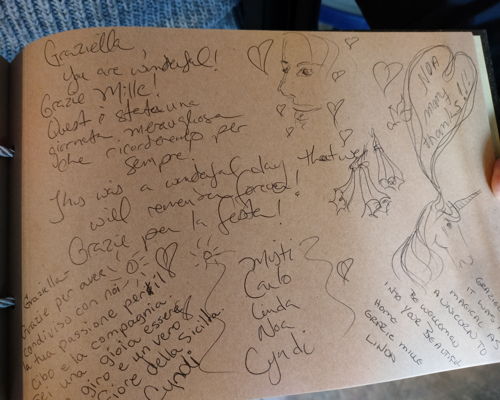 Graziella,
you are wonderful!
Grazie Mille!
Quest è stata una
giornata meravigliosa
che ricorderemo per
sempre.
This was a wonderful day that we
will remember forever!
Grazie per la festa!
Misti
Carlo
Linda
Noa
Cyndi
Graziella-
Grazie per aver
condiviso con noi
la tua passione per il
cibo e la compagnia
sei una gioia essere
in giro e un vero
fiore della Sicilia
Cyndi
NOA
many
thanks!!!
IT WAS
MAGICAL AS
A UNICORN TO
BE WELCOMED
INTO YOUR BEAUTIFUL
HOME
GRAZIE MILLE
LINDA